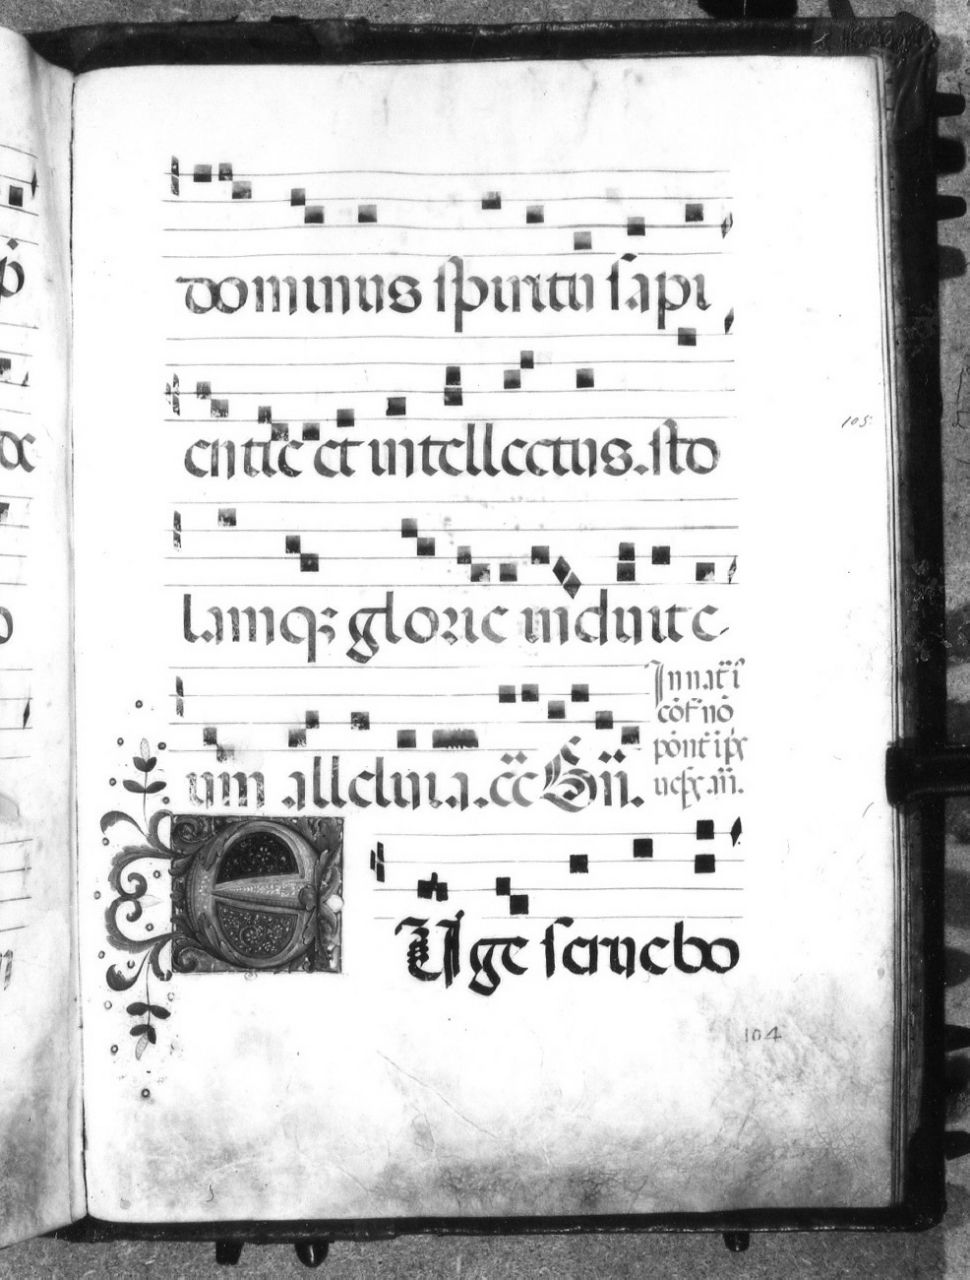 dominus spiritu sapi
entie et intellectus. sto
lamq; glorie induit e
um alleluia.
In nat̄ i᷒
cōf nō
E Uge serue bo
105
104